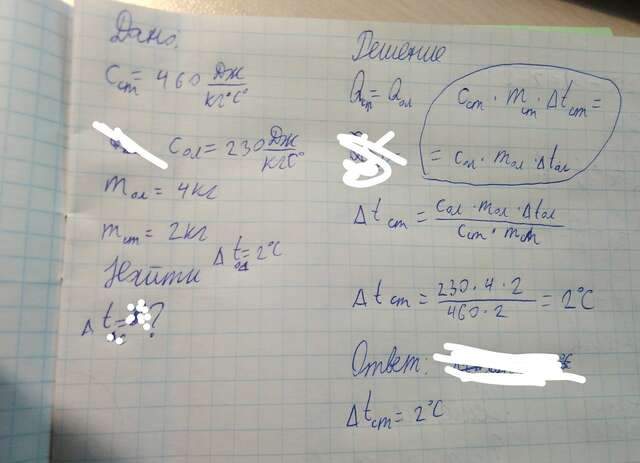 Дано:
Cст = 460 Дж/кг°C°
Cол = 230 Дж/кгC°
mол = 4кг
mст = 2кг
Δt = 2°C
Найти
Δt = ?
Решение
Qст = Qол
Cст · mст · Δtст =
= Cол · mол · Δtол
Δtст = Cол · mол · Δtол / Cст · mст
Δtст = 230 · 4 · 2 / 460 · 2 = 2°C
Ответ:
Δtст = 2°C